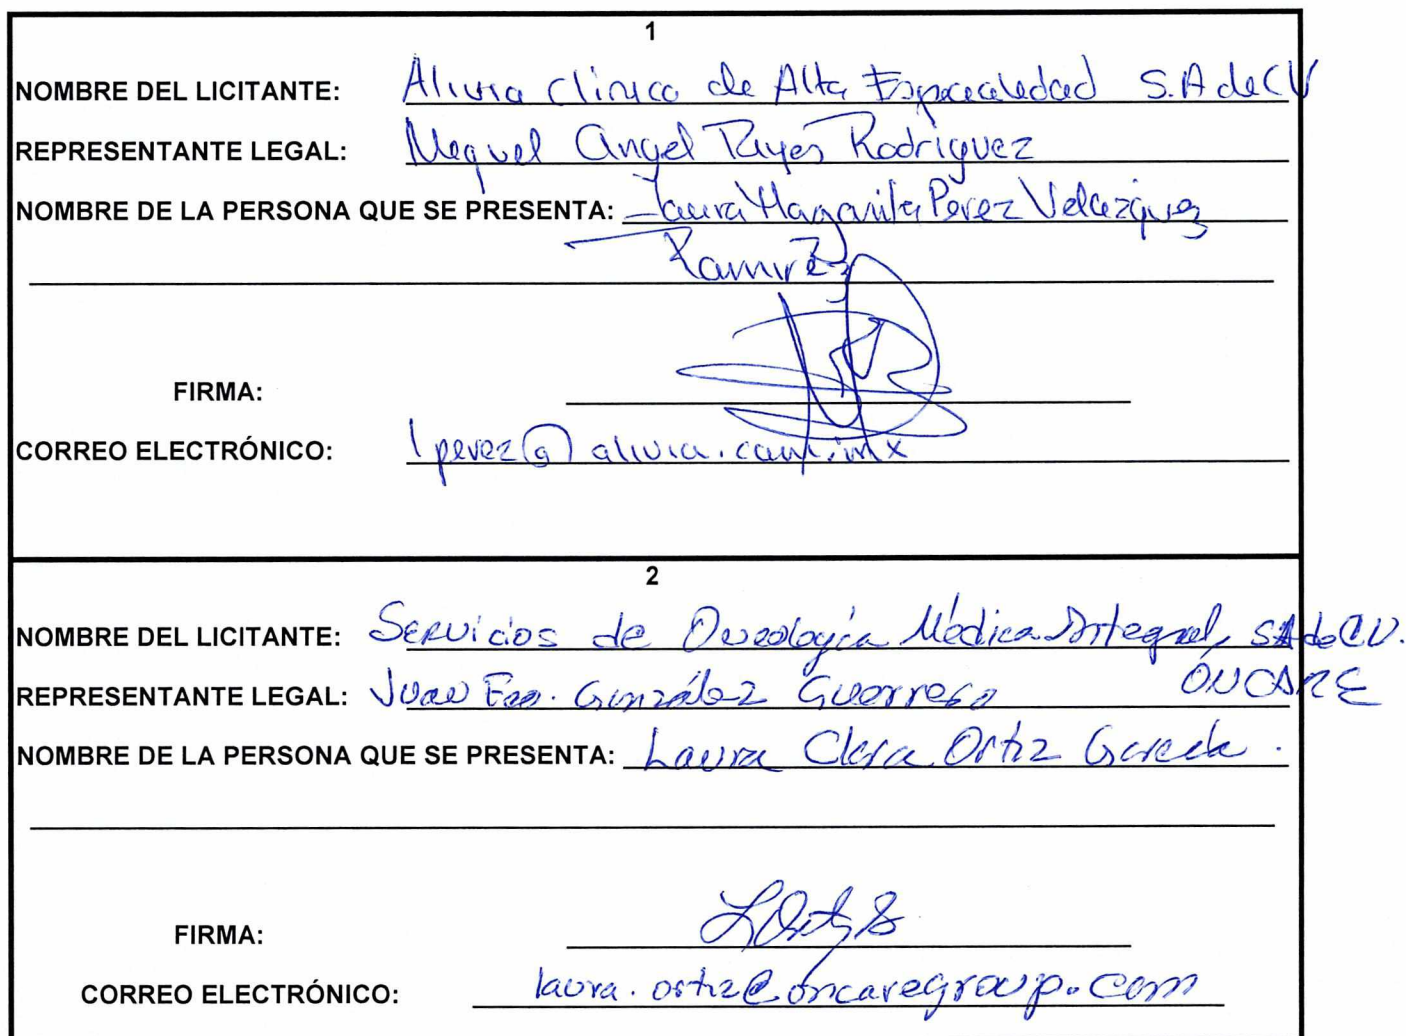 1
NOMBRE DEL LICITANTE: Alivia Clinica de Alta Especialidad S.A de CV
REPRESENTANTE LEGAL: Miguel Angel Reyes Rodriguez
NOMBRE DE LA PERSONA QUE SE PRESENTA: Laura Margarita Perez Velazquez
Ramirez
FIRMA:
CORREO ELECTRÓNICO: lperez@alivia.com.mx
2
NOMBRE DEL LICITANTE: Servicios de Oncología Médica Integral, SA de CV.
ONCARE
REPRESENTANTE LEGAL: Juan Fco. González Guerrero
NOMBRE DE LA PERSONA QUE SE PRESENTA: Laura Clara Ortiz García.
FIRMA: LOrtizG
CORREO ELECTRÓNICO: laura.ortiz@oncaregroup.com